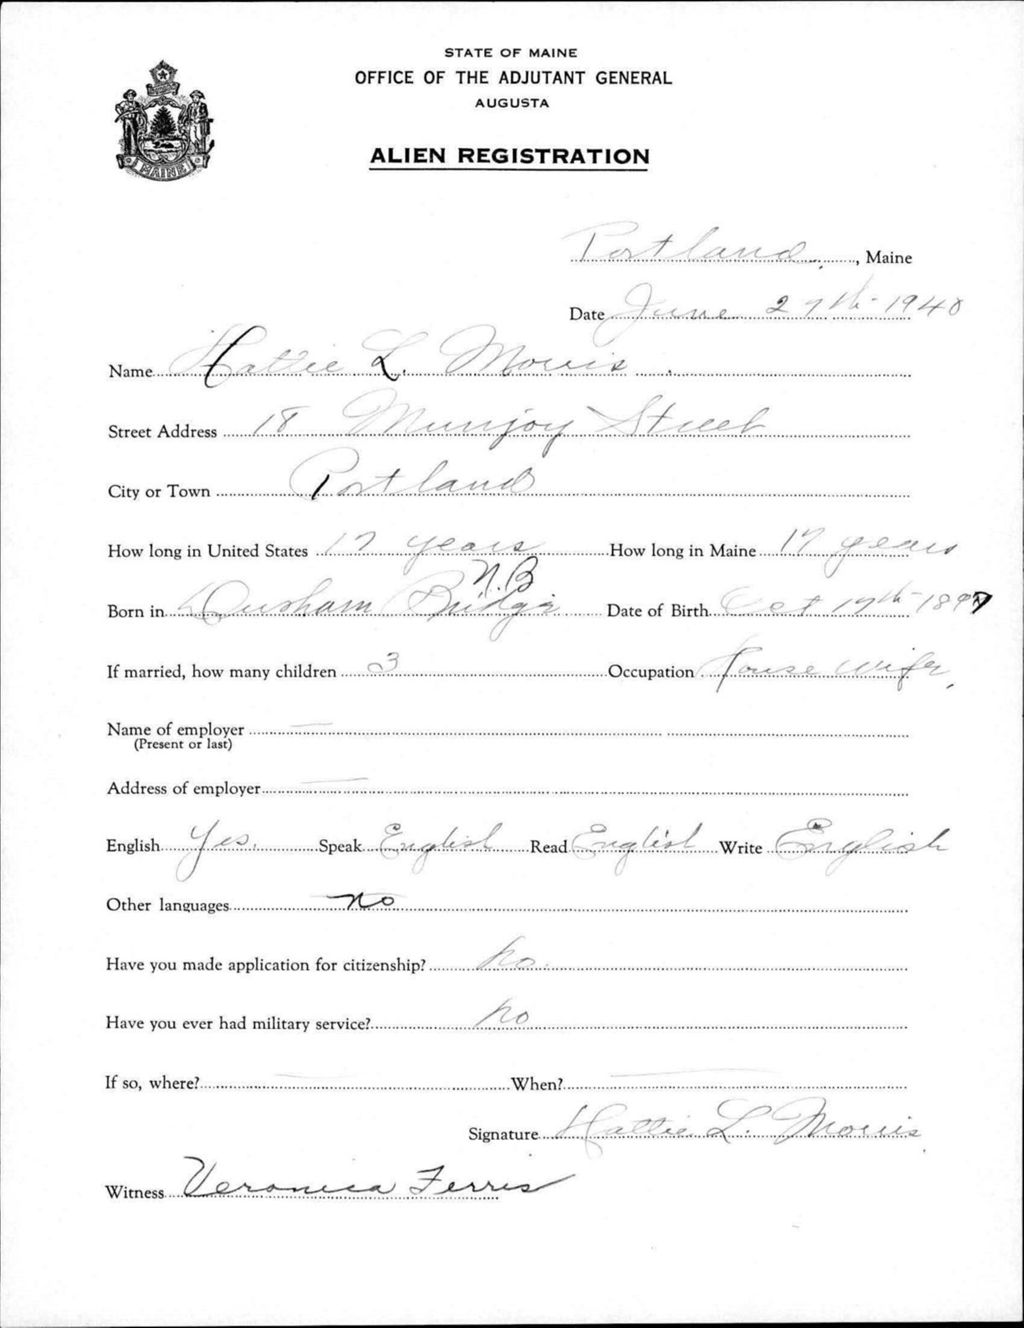 STATE OF MAINE
OFFICE OF THE ADJUTANT GENERAL
AUGUSTA
MAINE
ALIEN REGISTRATION
Portland, Maine
Date June 27th - 1940
Name Hattie L. Morris
Street Address 18 Munjoy Street
City or Town Portland
How long in United States 17 years How long in Maine 17 years
N.B
Born in Durham Bridge Date of Birth Oct 17th - 1897
If married, how many children 3 Occupation House wife,
Name of employer
(Present or last)
Address of employer
English Yes. Speak English Read English Write English
Other languages no
Have you made application for citizenship? no.
Have you ever had military service? no
If so, where? When?
Signature Hattie L. Morris
Witness Veronica Ferris